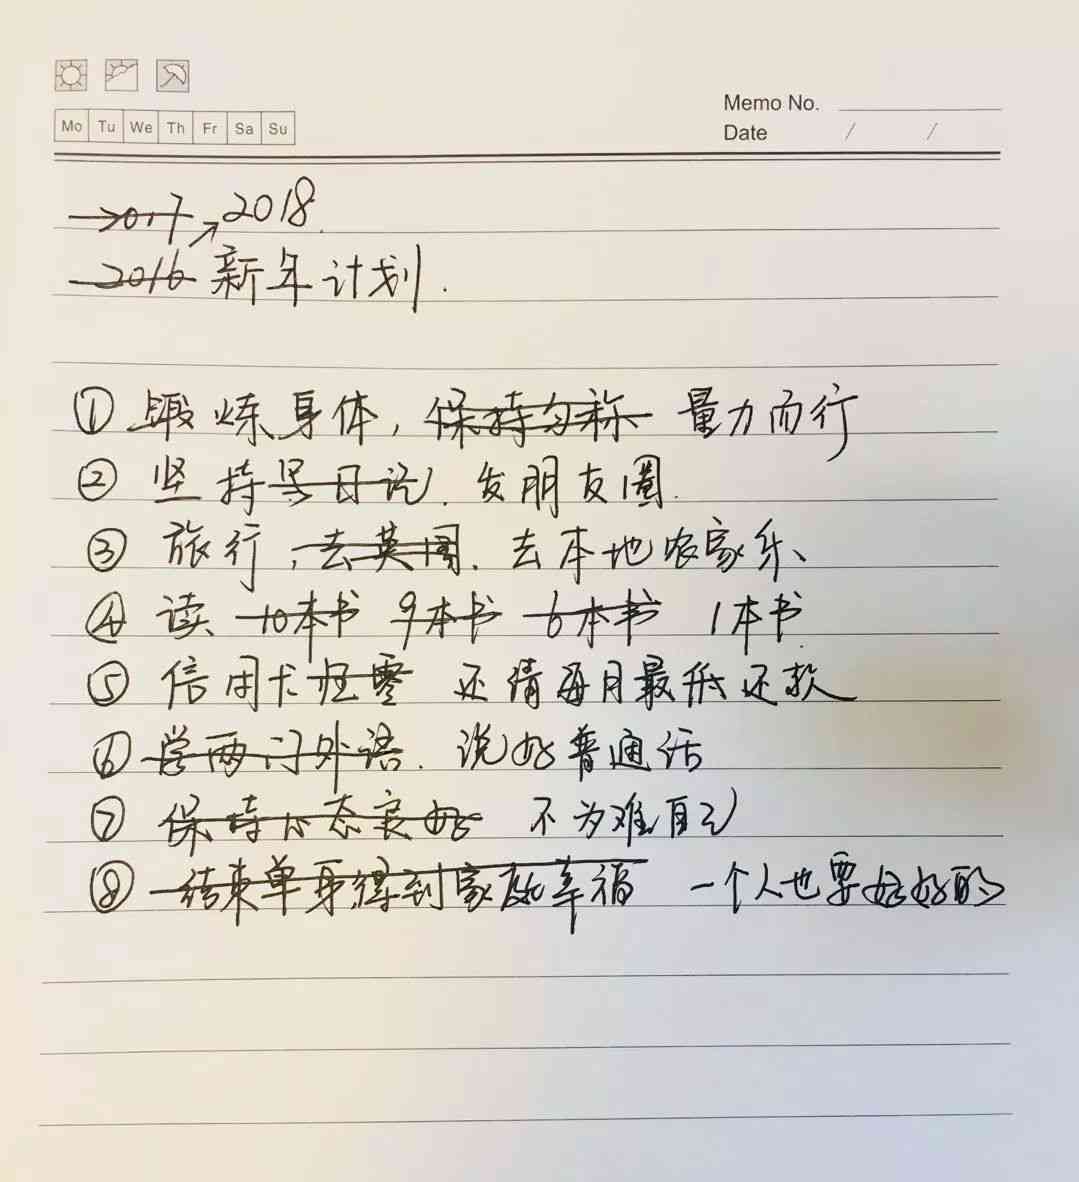 Mo Tu We Th Fr Sa Su
Memo No.
Date / /
2017 2018.
2016 新年计划.
① 锻炼身体, 保持匀称 量力而行
② 坚持写日记. 发朋友圈.
③ 旅行, 去英国. 去本地农家乐、
④ 读 10本书 9本书 6本书 1本书.
⑤ 信用卡归零 还清每月最低还款
⑥ 学两门外语. 说好普通话
⑦ 保持心态良好 不为难自己
⑧ 结束单身得到家庭幸福 一个人也要好好的